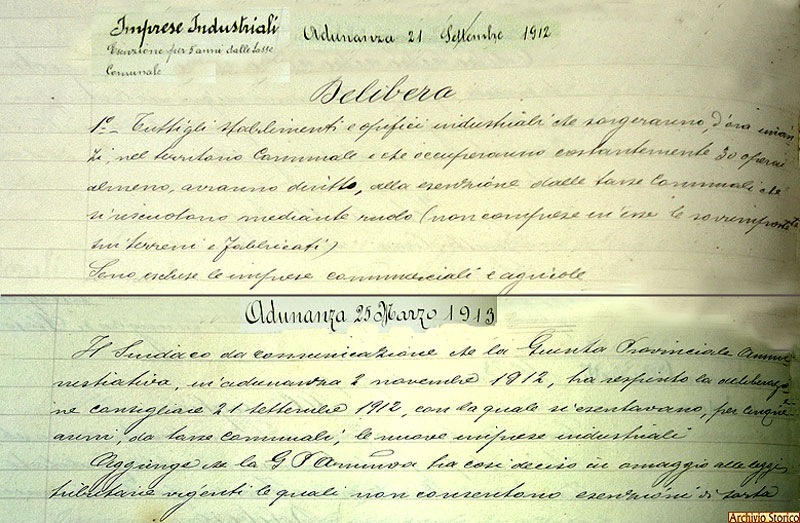 Imprese Industriali
Esenzione per 5 anni dalle tasse
Comunale
Adunanza 21 Settembre 1912
Delibera
1º - Tutti gli stabilimenti e opifici industriali che sorgeranno, d'ora innan-
zi, nel territorio Comunale e che occuperanno costantemente 30 operai
almeno, avranno diritto, alla esenzione dalle tasse Comunali che
si riscuotono mediante ruolo (non comprese in esse le sovrimposte
sui terreni e fabbricati)
Sono escluse le imprese commerciali e agricole
Adunanza 25 Marzo 1913
Il Sindaco da comunicazione che la Giunta Provinciale Ammi-
nistrativa, in adunanza 2 novembre 1912, ha respinto la deliberazio-
ne consigliare 21 settembre 1912, con la quale si esentavano, per cinque
anni, da tasse comunali, le nuove imprese industriali
Aggiunge che la G P Amm.va ha così deciso in omaggio alle leggi
tributarie vigenti le quali non consentono esenzioni di sorta
Archivio Storico